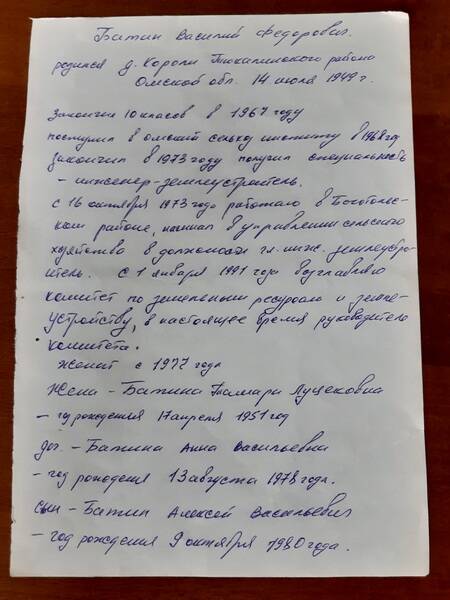 Батин Василий Федорович.
родился д. Короли Тюкалинского района
Омской обл. 14 июля 1949 г.
Закончил 10 класов в 1967 году
поступил в омский сельхоз институт в 1968 год
закончил в 1973 году получил специальность
- инженер-землеустроитель.
с 16 октября 1973 года работаю в Боготольс-
ком районе, начинал в управлении сельского
хозяйства в должности гл. инж. землеустро-
итель. с 1 января 1991 года возглавляю
комитет по земельным ресурсам и земле-
устройству, в настоящее время руководитель
комитета.
Женат с 1977 года
Жена - Батина Тамара
- год рождения 17 апреля 1951 год
доч. - Батина Анна Васильевна
- год рождения 13 августа 1978 года.
сын - Батин Алексей Васильевич
- год рождения 9 октября 1980 года.